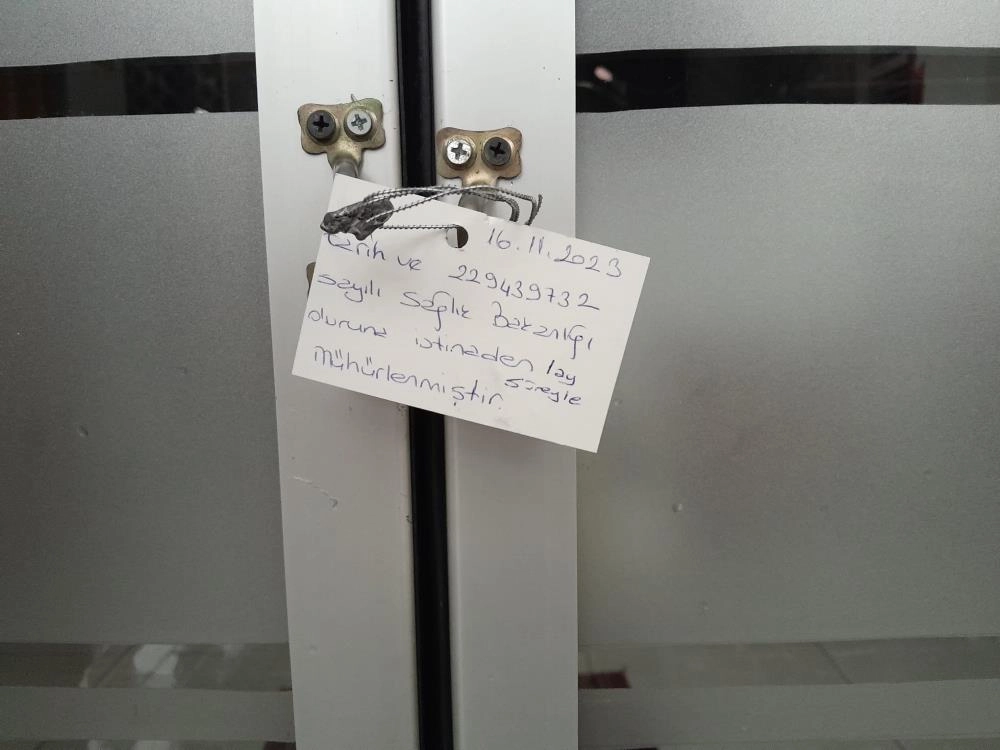 16.11.2023
tarih ve 229439732
sayılı Sağlık Bakanlığı
oluruna istinaden 1ay süreyle
mühürlenmiştir.